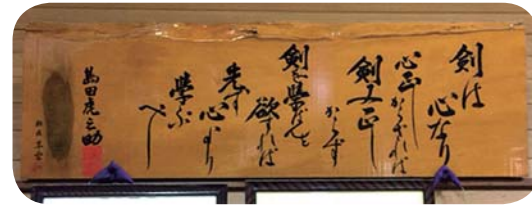 剣は
心なり
心正しからざれば
剣又正し
からず
剣を學ばんと
欲すれば
先す心より
學ぶ
べし
島田虎之助